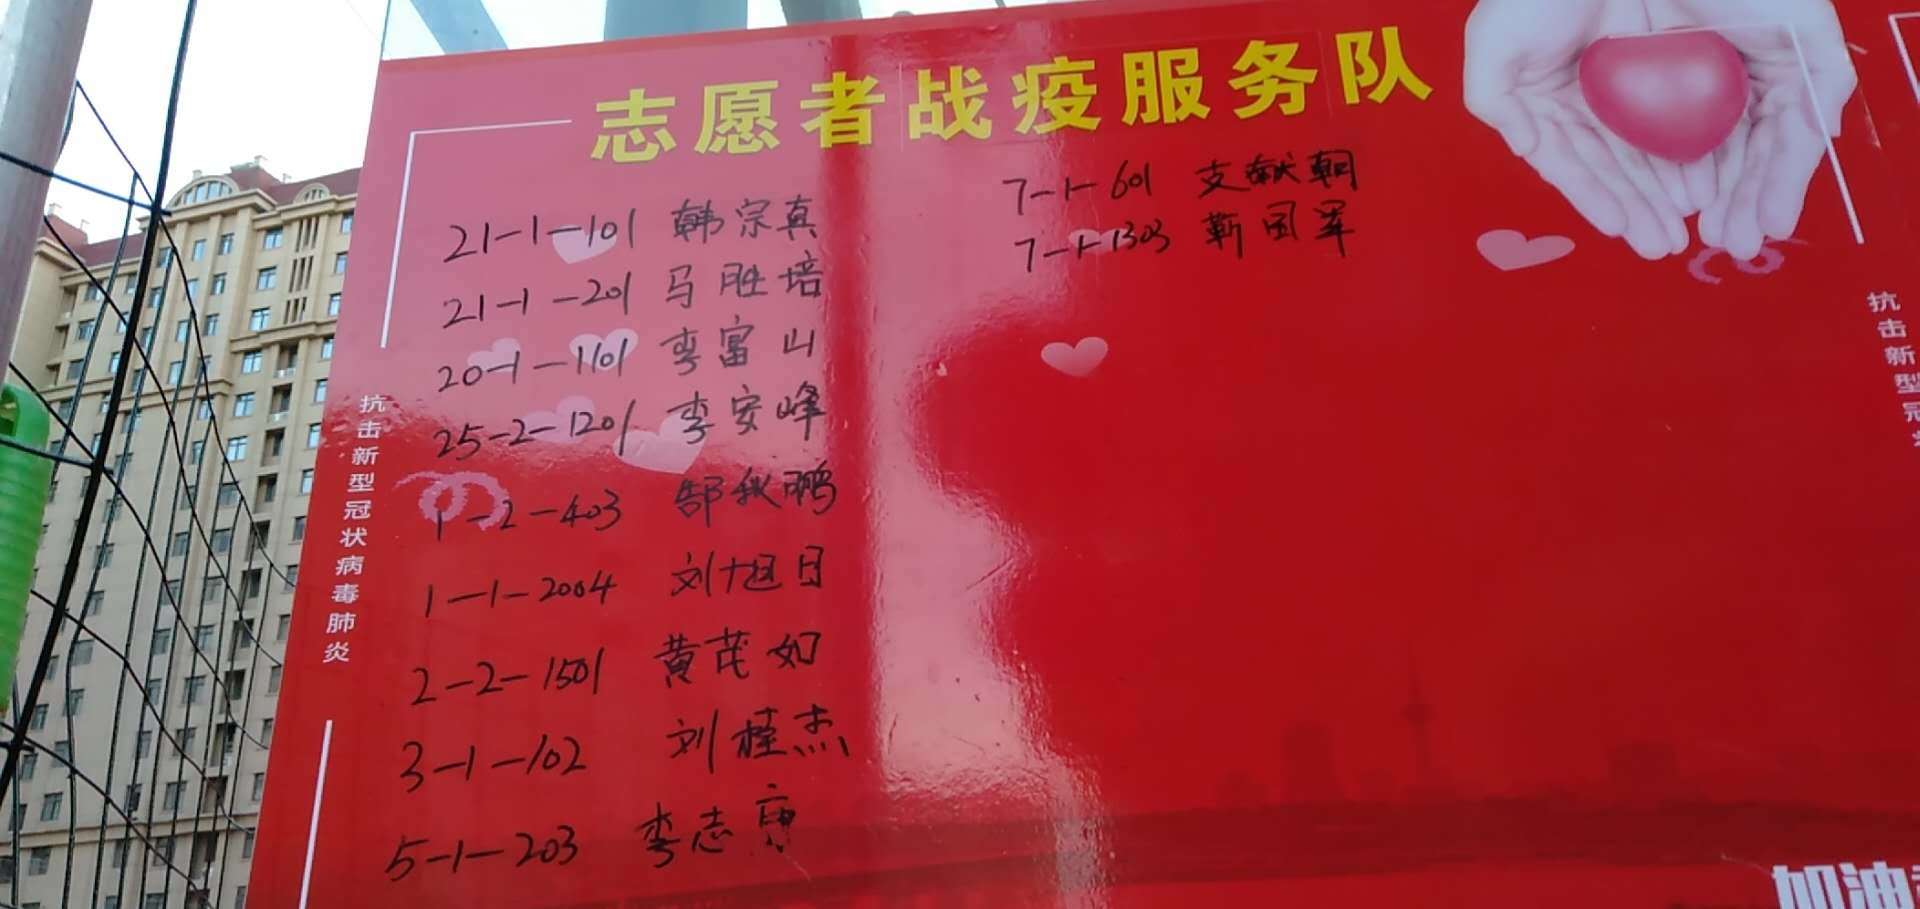 志愿者战疫服务队
21-1-101 韩宗真
21-1-201 马胜培
20-1-1101 李富山
25-2-1201 李安峰
1-2-403 郜秋鹏
1-1-2004 刘旭日
2-2-1501 黄茂如
3-1-102 刘桂杰
5-1-203 李志
7-1-601 支献朝
7-1-1303 靳国军
抗击新型冠状病毒肺炎
抗击新型冠状
加油